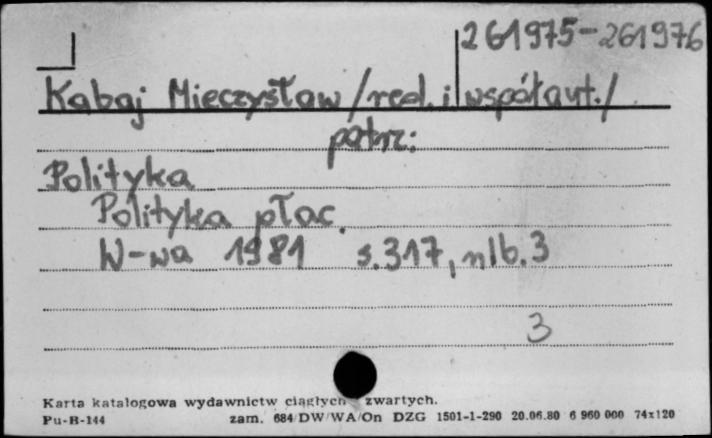 261975-261976
Kabaj Mieczysław /red. i współaut./
patrz:
Polityka
Polityka płac.
W-wa 1981 s.317, nlb.3
3
Karta katalogowa wydawnictw ciągłych zwartych.
Pu-B-144 zam. 684/DW/WA/On DZG 1501-1-290 20.06.80 6 960 000 74x120